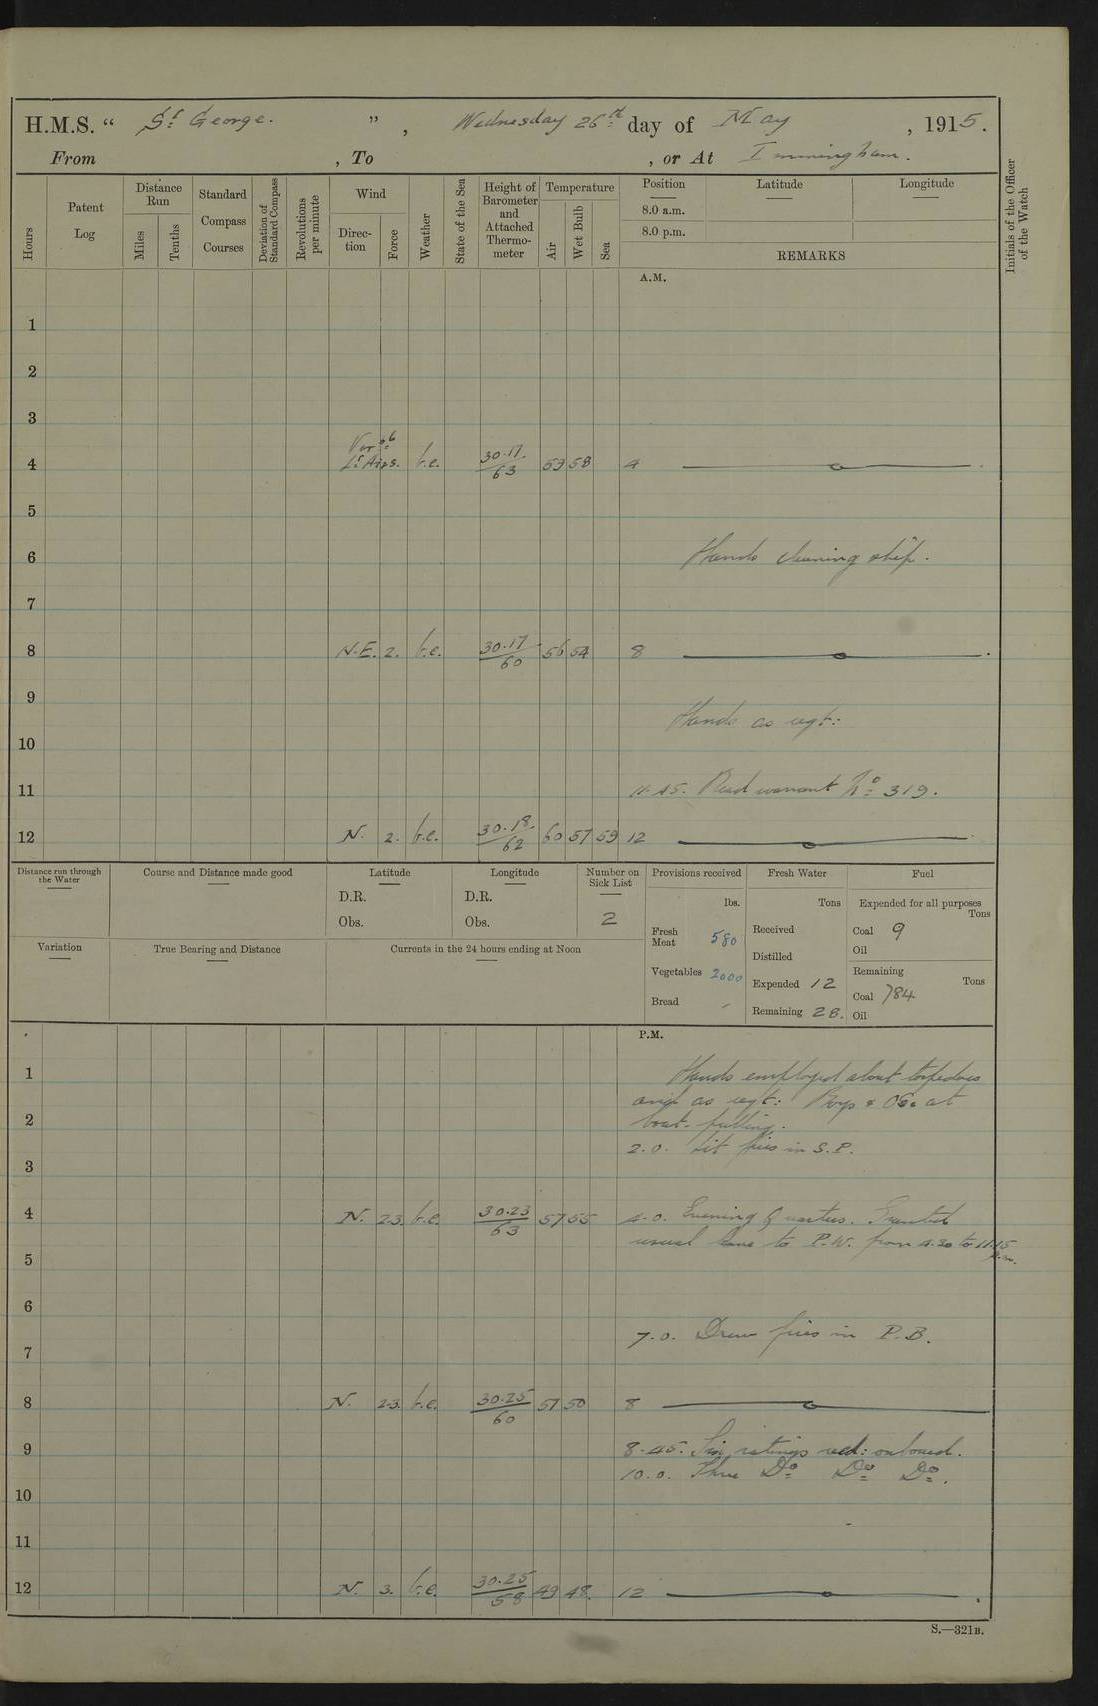 H.M.S. “ St George. ” , Wednesday 26th day of May , 1915.
From , To , or At Immingham.
Hours
Patent Log
Distance Run
Miles
Tenths
Standard Compass Courses
Deviation of Standard Compass
Revolutions per minute
Wind
Direc- tion
Force
Weather
State of the Sea
Height of Barometer and Attached Thermo- meter
Temperature
Air
Wet Bulb
Sea
Position
Latitude
Longitude
8.0 a.m.
8.0 p.m.
REMARKS
Initials of the Officer of the Watch
A.M.
1
2
3
4 Varble Lt Airs. b.c. 30.17./63 59 58 4
5
6 Hands cleaning ship.
7
8 N.E. 2. b.c. 30.17/60 56 54 8
9
Hands as reqt:
10
11 11.45. Read warrant No 319.
12 N. 2. b.c. 30.18./62 60 57 59 12
Distance run through the Water
Course and Distance made good
Latitude
D.R.
Obs.
Longitude
D.R.
Obs.
Number on Sick List
2
Provisions received
lbs.
Fresh Meat 580
Vegetables 2000
Bread -
Fresh Water
Tons
Received
Distilled
Expended 12
Remaining 28.
Fuel
Expended for all purposes
Tons
Coal 9
Oil
Remaining
Tons
Coal 784
Oil
Variation
True Bearing and Distance
Currents in the 24 hours ending at Noon
P.M.
1 Hands employed about torpedoes
and as reqt: Boys & at
2 boat-pulling.
2.0. Lit fires in S.P.
3
4 N. 2.3. b.c. 30.23/63 57 55 4.0. Evening Quarters. Granted
usual leave to P.W. from 4.30 to 11.15 p.m.
5
6
7.0. Drew fires in P.B.
7
8 N. 2.3. b.c. 30.25/60 51 50 8
9 8.45. ratings recd: onboard.
10.0. Three Do Do Do.
10
11
12 N. 3. b.c. 30.25/58 49 48. 12
S.—321B.